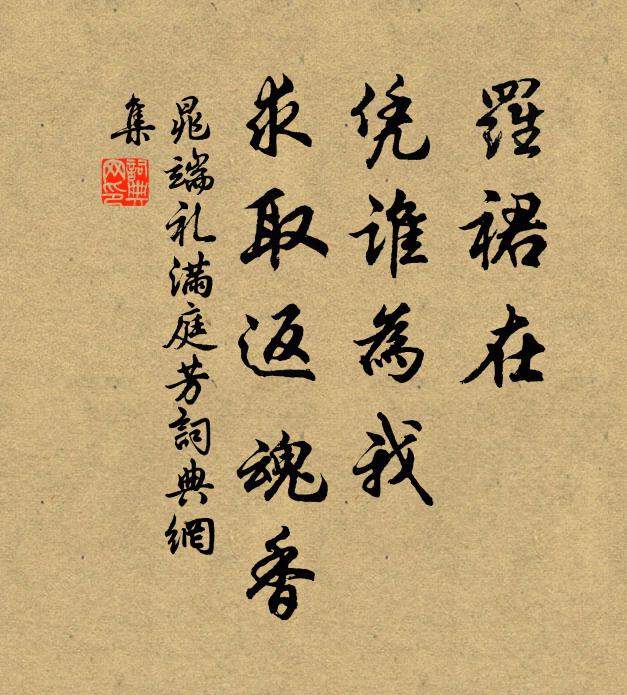 羅裙在
凭誰為我
求取返魂香
晁端礼滿庭芳詞典網
集
詞典
网印